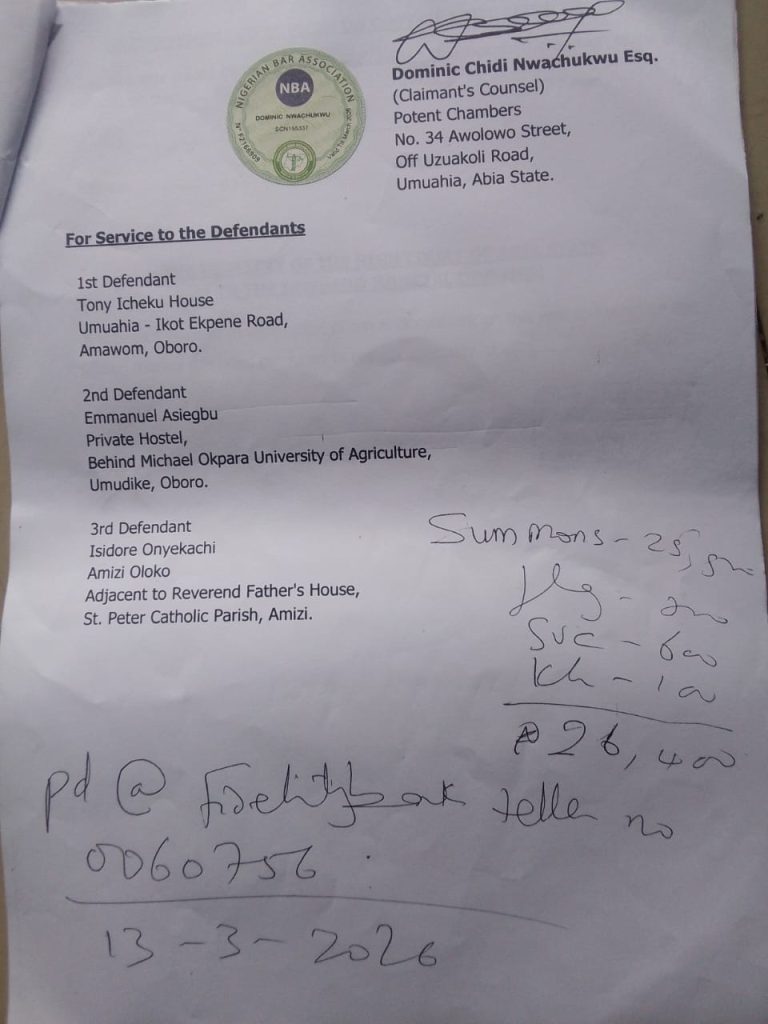 NIGERIAN BAR ASSOCIATION
NBA
DOMINIC NWACHUKWU
Dominic Chidi Nwachukwu Esq.
(Claimant's Counsel)
Potent Chambers
No. 34 Awolowo Street,
Off Uzuakoli Road,
Umuahia, Abia State.
For Service to the Defendants
1st Defendant
Tony Icheku House
Umuahia - Ikot Ekpene Road,
Amawom, Oboro.
2nd Defendant
Emmanuel Asiegbu
Private Hostel,
Behind Michael Okpara University of Agriculture,
Umudike, Oboro.
3rd Defendant
Isidore Onyekachi
Amizi Oloko
Adjacent to Reverend Father's House,
St. Peter Catholic Parish, Amizi.
Summons - 25,500
flg - 200
Svc - 600
- 100
₦26,400
pd @ Fidelitybank teller no
0060756
13-3-2026